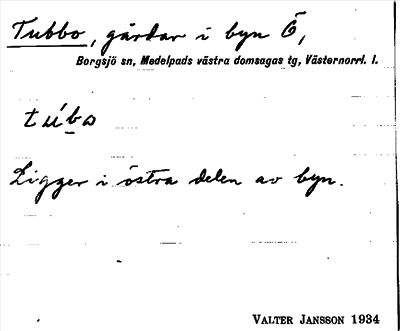 Tubbo, gårdar i byn Ö,
Borgsjö sn, Medelpads västra domsagas tg, Västernorrl. l.
túbo
Ligger i östra delen av byn.
VALTER JANSSON 1934